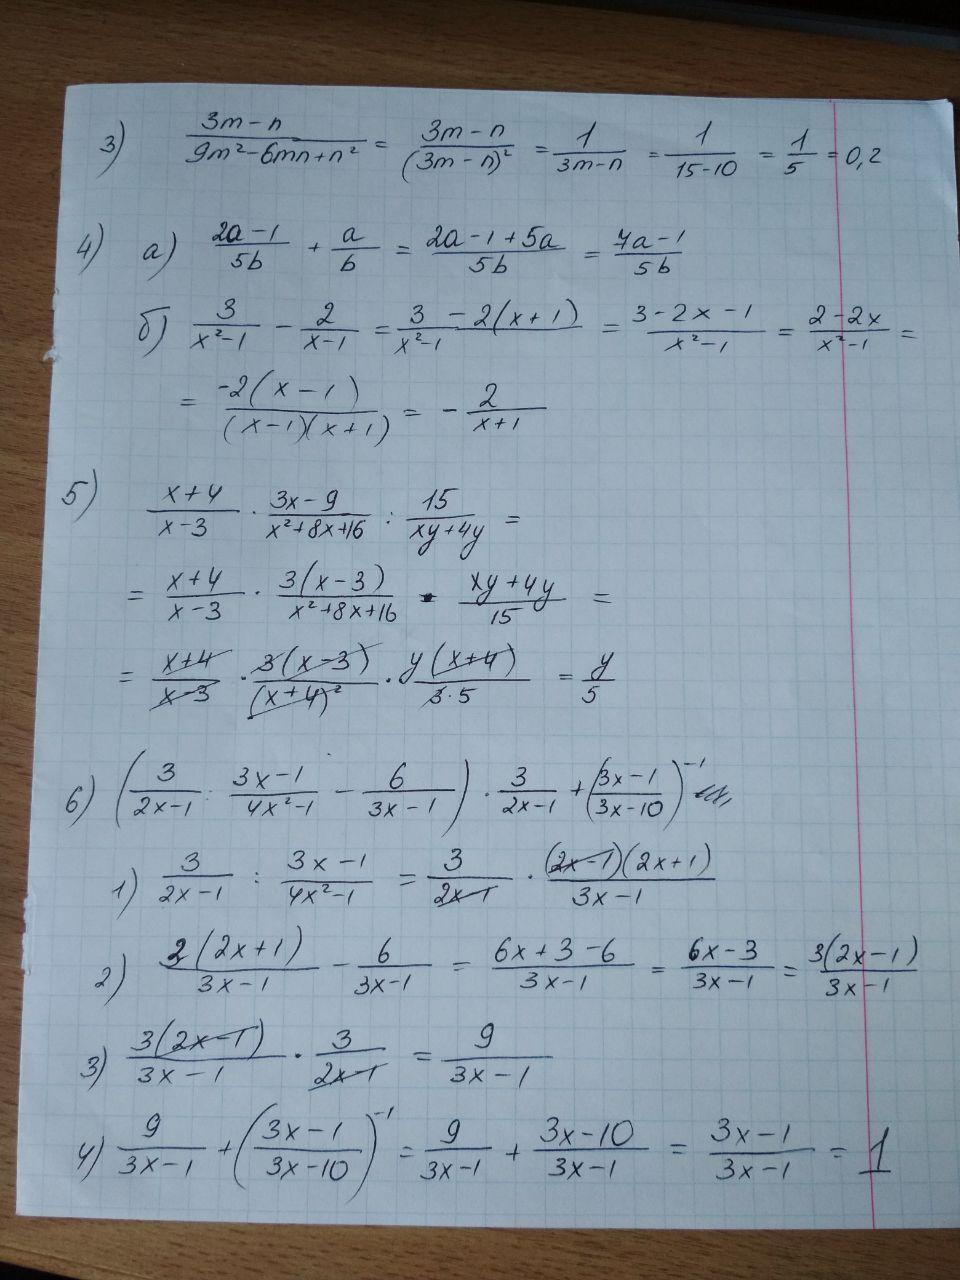 3) (3m-n)/(9m²-6mn+n²) = (3m-n)/(3m-n)² = 1/(3m-n) = 1/(15-10) = 1/5 = 0,2
4) а) (2a-1)/5b + a/b = (2a-1+5a)/5b = (7a-1)/5b
б) 3/(x²-1) - 2/(x-1) = (3-2(x+1))/(x²-1) = (3-2x-1)/(x²-1) = (2-2x)/(x²-1) =
= -2(x-1)/((x-1)(x+1)) = -2/(x+1)
5) (x+4)/(x-3) · (3x-9)/(x²+8x+16) : 15/(xy+4y) =
= (x+4)/(x-3) · 3(x-3)/(x²+8x+16) · (xy+4y)/15 =
= (x+4)/(x-3) · 3(x-3)/(x+4)² · y(x+4)/(3·5) = y/5
6) (3/(2x-1) : (3x-1)/(4x²-1) - 6/(3x-1)) · 3/(2x-1) + ((3x-1)/(3x-10))⁻¹
1) 3/(2x-1) : (3x-1)/(4x²-1) = 3/(2x-1) · (2x-1)(2x+1)/(3x-1)
2) 2(2x+1)/(3x-1) - 6/(3x-1) = (6x+3-6)/(3x-1) = (6x-3)/(3x-1) = 3(2x-1)/(3x-1)
3) 3(2x-1)/(3x-1) · 3/(2x-1) = 9/(3x-1)
4) 9/(3x-1) + ((3x-1)/(3x-10))⁻¹ = 9/(3x-1) + (3x-10)/(3x-1) = (3x-1)/(3x-1) = 1